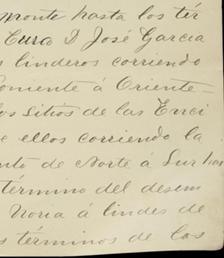 monte hasta los tér
Cura D José Garcia
s linderos corriendo
oniente á Oriente-
los sitios de las Enci
e ellos corriendo la
nto de Norte á Sur has
término del desem
Noria á lindes de
s términos de los